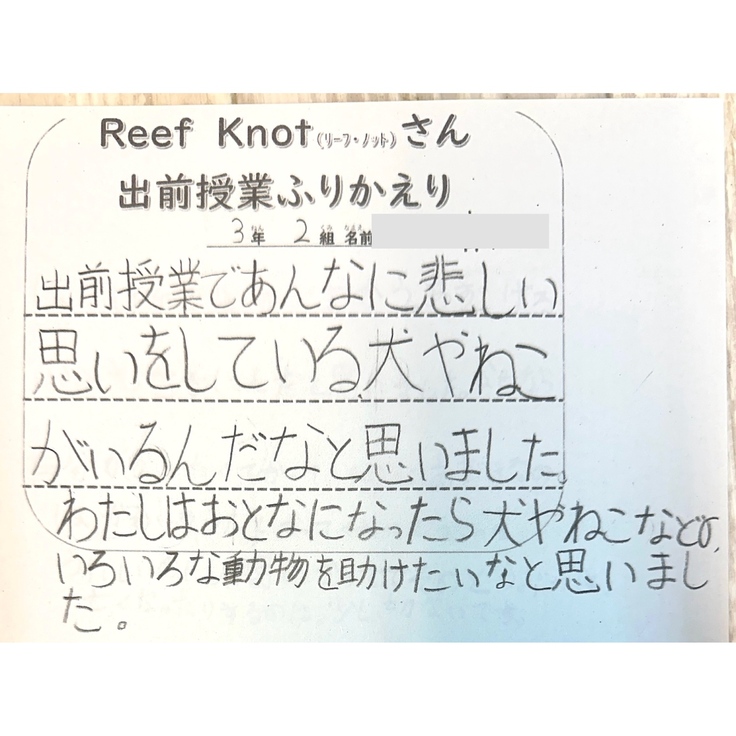 Reef Knot(リーフ・ノット)さん
出前授業ふりかえり
3年 2組 名前
出前授業であんなに悲しい
思いをしている犬やねこ
がいるんだなと思いました。
わたしはおとなになったら犬やねこなどの、
いろいろな動物を助けたいなと思いまし
た。